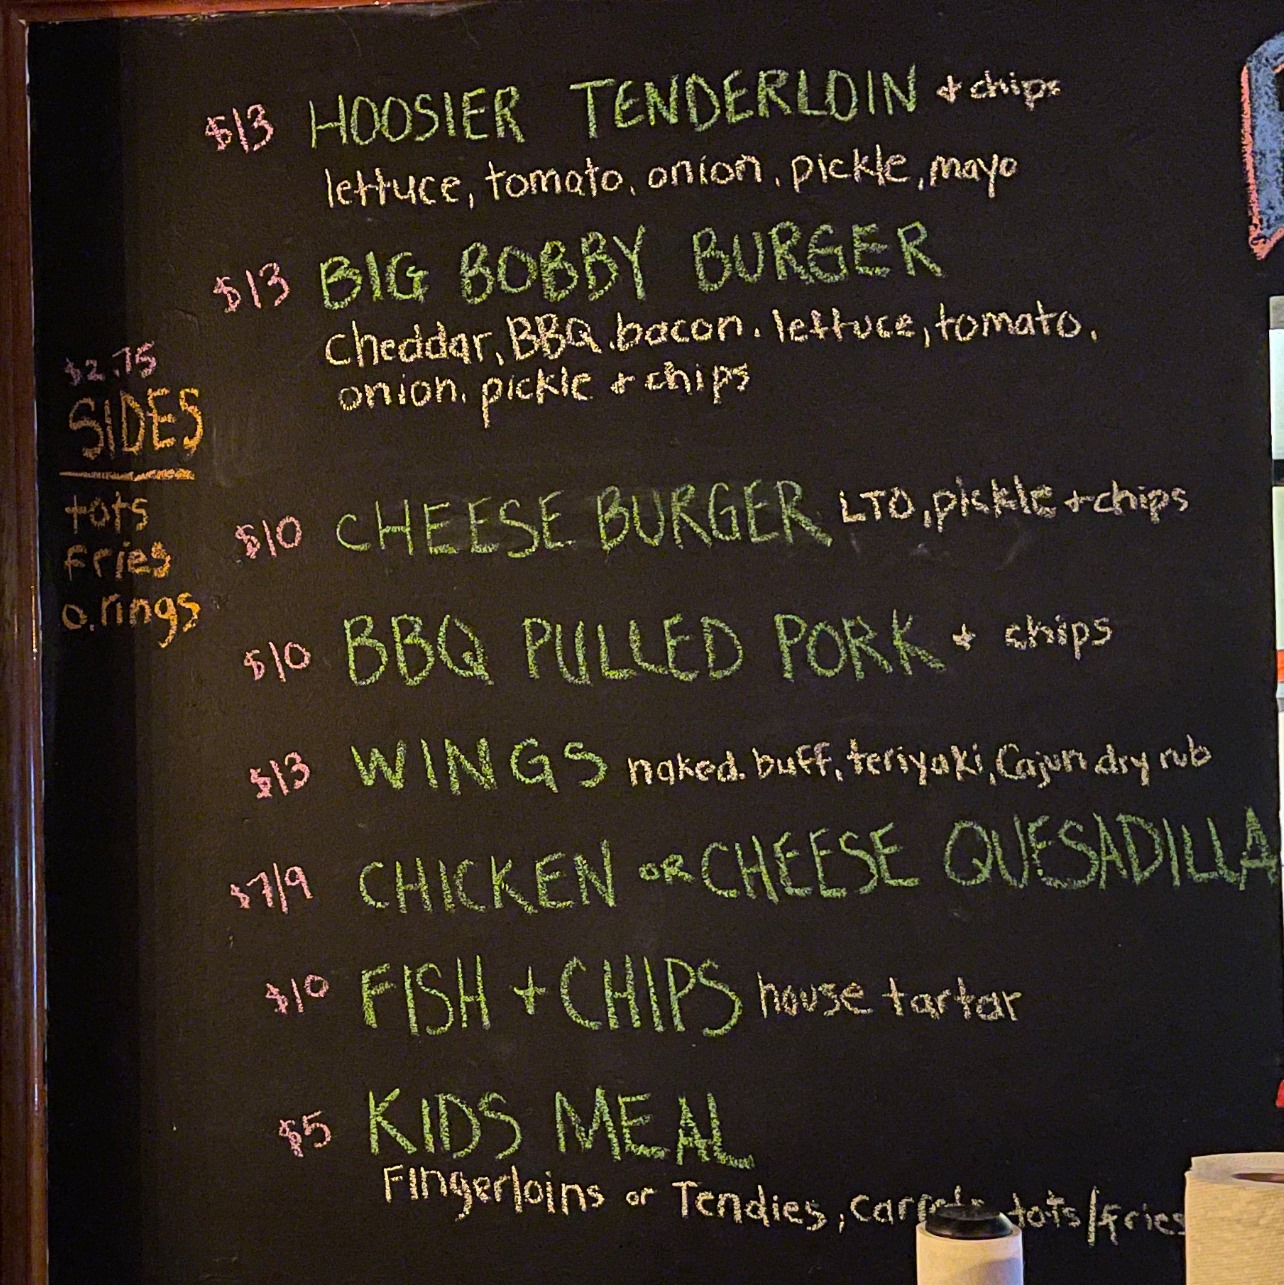 $13 HOOSIER TENDERLOIN + chips
lettuce, tomato, onion, pickle, mayo
$13 BIG BOBBY BURGER
Cheddar, BBQ, bacon, lettuce, tomato,
onion, pickle + chips
$2.75
SIDES
tots
fries
o.rings
$10 CHEESE BURGER LTO, pickle + chips
$10 BBQ PULLED PORK + chips
$13 WINGS naked, buff, teriyaki, Cajun dry rub
$7/9 CHICKEN OR CHEESE QUESADILLA
$10 FISH + CHIPS house tartar
$5 KIDS MEAL
Fingerloins or Tendies, tots/fries